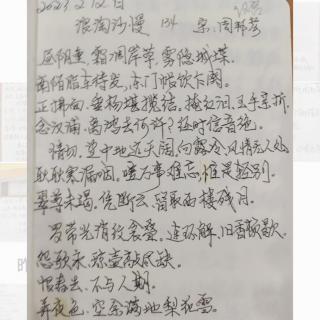 浪淘沙·慢 134 宋·周邦彦
昼阴重,霜凋岸草,雾隐城堞。
南陌脂车待发,东门帐饮乍阕。
正拂面,垂杨堪揽结。掩红泪,玉手亲折。
念汉浦,离鸿去何许?经时信音绝。
情切,望中地远天阔,向露冷、风清无人处,
耿耿寒漏咽。嗟万事难忘,惟是轻别。
翠尊未竭。凭断云、留取西楼残月。
罗带光消纹衾叠。连环解、旧香顿歇。
怨歌永、琼壶敲尽缺。
恨春去、不与人期。
弄夜色,空余满地梨花雪